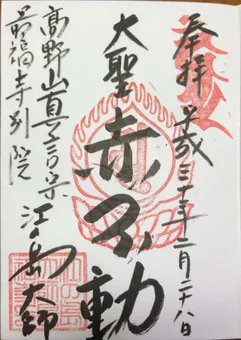 奉拝 平成三十三年一月二十八日
大聖赤不動
高野山真言宗
最福寺別院 江の島大師